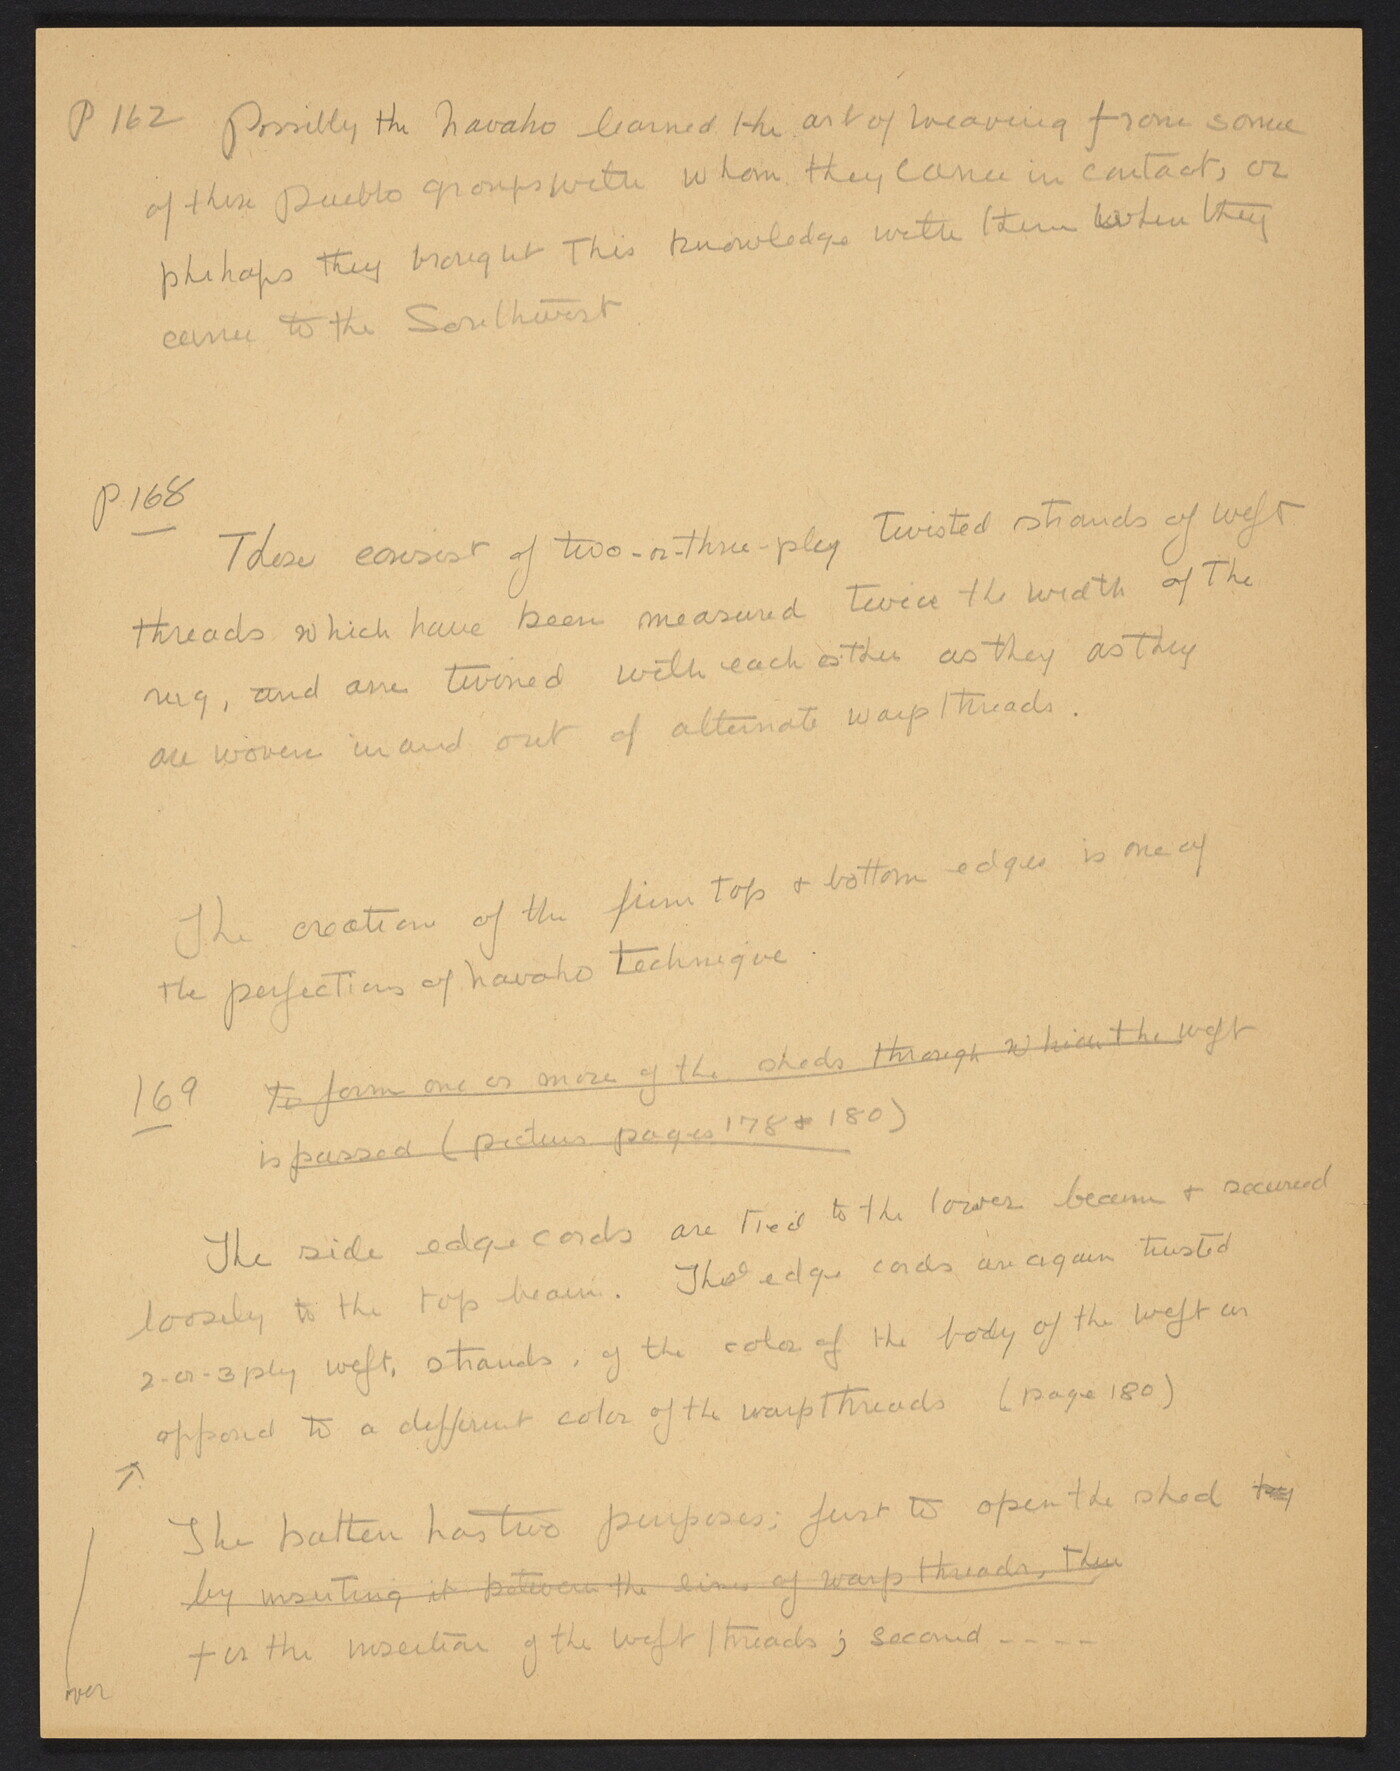 P 162 Possilly the Navaho learned the art of weaving from some
of these Pueblo groups with whom they came in contact, or
phehaps they brought This knowledge with them when they
came to the Southwest
P. 168
These consist of two-or-three-ply twisted strands of weft
threads which have been measured twice the width of The
rug, and are twined with each other as they as they
are woven in and out of alternate warp threads.
The creation of the firm top & bottom edges is one of
the perfections of Navaho technique.
169 to form one or more of the sheds through which the weft
is passed (picture pages 178 & 180)
The side edge cords are tied to the lower beam & secured
loosely to the top beam. The edge cords are again twisted
2-or-3 ply weft, strands, of the color of the body of the weft as
opposed to a different color of the warp threads (page 180)
The batten has two purposes; first to open the shed
by inserting it between the lines of warp threads, then
for the insertion of the weft threads; second ----
over